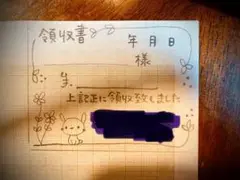 領収書 年 月 日
様
¥
上記正に領収致しました